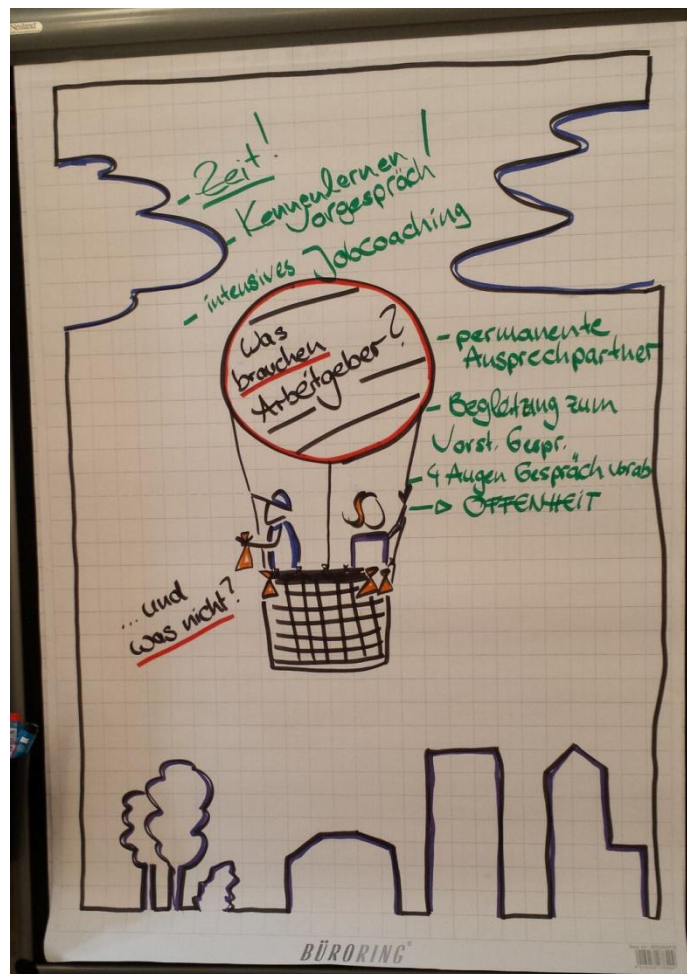 - Zeit!
- Kennenlernen /
Vorgespräch
- intensives Jobcoaching
Was
brauchen
Arbeitgeber?
- permanente
Ansprechpartner
- Begleitung zum
Vorst. Gespr.
- 4 Augen Gespräch vorab
→ OFFENHEIT
... und
was nicht?
BÜRORING